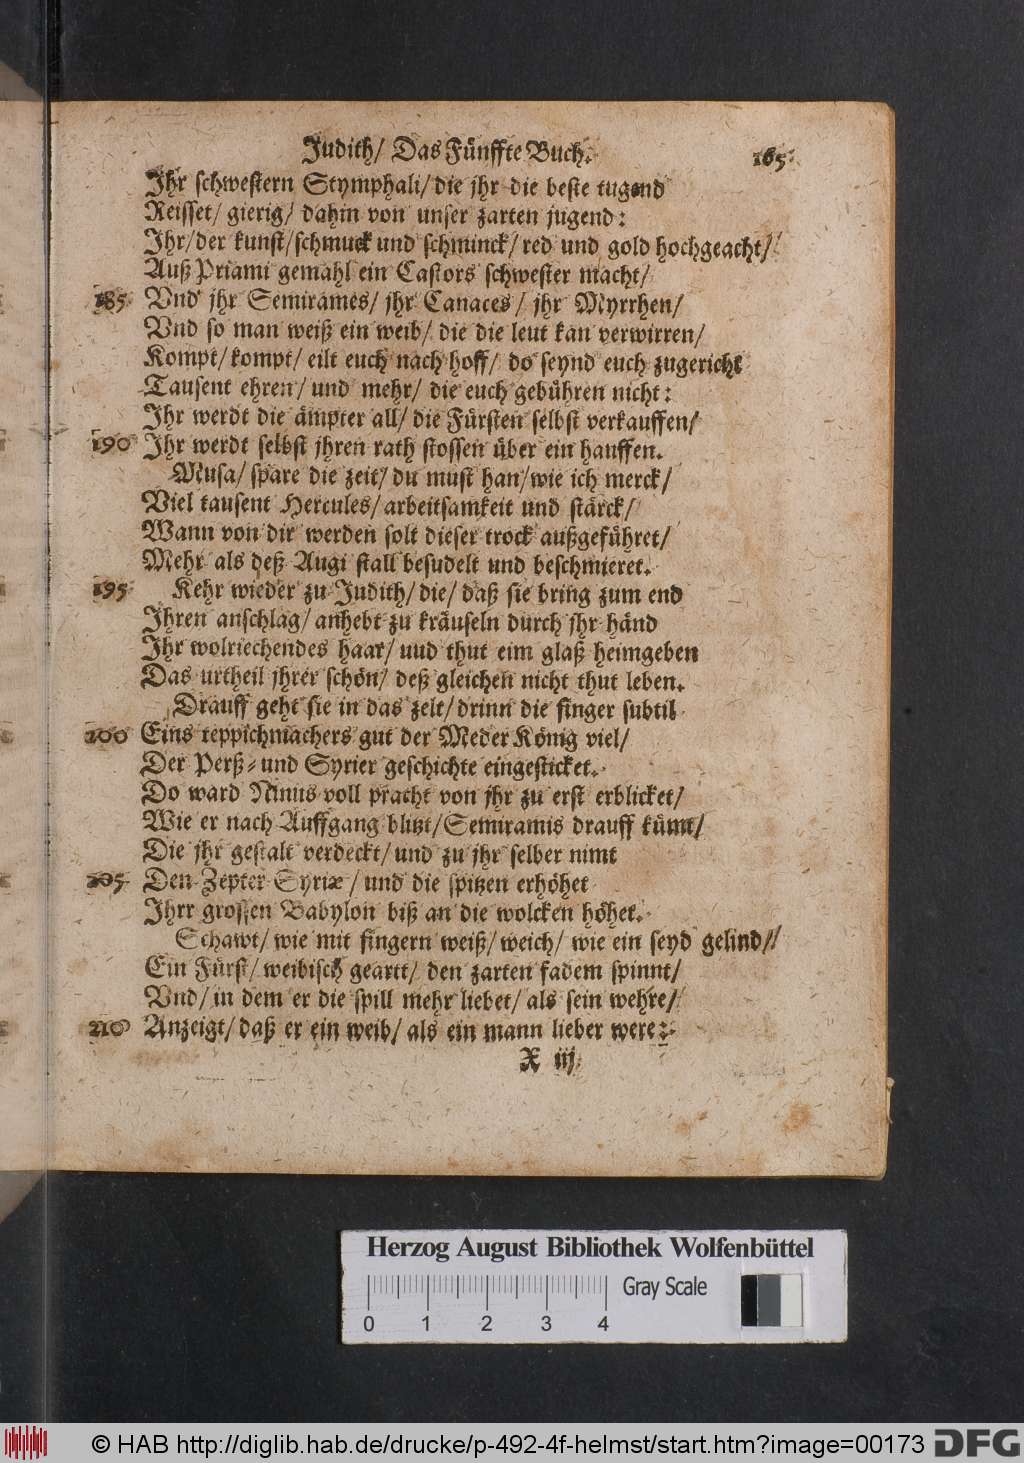 Judith/ Das Fünffte Buch. 165.
Ihr schwestern Stymphali/ die jhr die beste tugend
Reisset/ gierig/ dahin von unser zarten jugend:
Ihr/ der kunst/ schmuck und schminck/ red und gold hochgeacht/
Auß Priami gemahl ein Castors schwester macht/
185. Vnd jhr Semirames/ jhr Canaces/ jhr Myrrhen/
Vnd so man weiß ein weib/ die die leut kan verwirren/
Kompt/ kompt/ eilt euch nach hoff/ do seynd euch zugericht
Tausent ehren/ und mehr/ die euch gebühren nicht:
Ihr werdt die ämpter all/ die Fürsten selbst verkauffen/
190 Ihr werdt selbst jhren rath stossen über ein hauffen.
Musa/ spare die zeit/ du must han/ wie ich merck/
Viel tausent Hercules/ arbeitsamkeit und stärck/
Wann von dir werden solt dieser trock außgeführet/
Mehr als deß Augi stall besudelt und beschmieret.
195 Kehr wieder zu Judith/ die/ daß sie bring zum end
Ihren anschlag/ anhebt zu kräuseln durch jhr händ
Ihr wolriechendes haar/ uud thut eim glaß heimgeben
Das urtheil jhrer schön/ deß gleichen nicht thut leben.
Drauff geht sie in das zelt/ drinn die finger subtil
200 Eins teppichmachers gut der Meder König viel/
Der Perß- und Syrier geschichte eingesticket.
Do ward Ninus voll pracht von jhr zu erst erblicket/
Wie er nach Auffgang blitzt/ Semiramis drauff kümt/
Die jhr gestalt verdeckt/ und zu jhr selber nimt
205. Den Zepter Syriæ/ und die spitzen erhöhet
Ihrr grossen Babylon biß an die wolcken höhet.
Schawt/ wie mit fingern weiß/ weich/ wie ein seyd gelind/
Ein Fürst/ weibisch geartt/ den zarten fadem spinnt/
Vnd/ in dem er die spill mehr liebet/ als sein wehre/
210 Anzeigt/ daß er ein weib/ als ein mann lieber were:
X iij
Herzog August Bibliothek Wolfenbüttel
Gray Scale
0 1 2 3 4
© HAB http://diglib.hab.de/drucke/p-492-4f-helmst/start.htm?image=00173 DFG